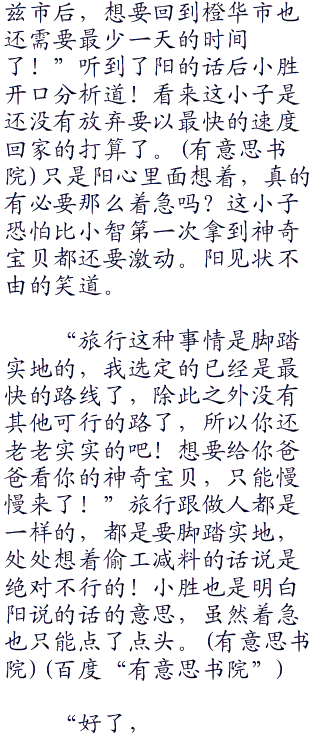 兹市后，想要回到橙华市也
还需要最少一天的时间
了！”听到了阳的话后小胜
开口分析道！看来这小子是
还没有放弃要以最快的速度
回家的打算了。(有意思书
院)只是阳心里面想着，真的
有必要那么着急吗？这小子
恐怕比小智第一次拿到神奇
宝贝都还要激动。阳见状不
由的笑道。
“旅行这种事情是脚踏
实地的，我选定的已经是最
快的路线了，除此之外没有
其他可行的路了，所以你还
老老实实的吧！想要给你爸
爸看你的神奇宝贝，只能慢
慢来了！”旅行跟做人都是
一样的，都是要脚踏实地，
处处想着偷工减料的话说是
绝对不行的！小胜也是明白
阳说的话的意思，虽然着急
也只能点了点头。(有意思书
院)(百度“有意思书院”)
“好了，